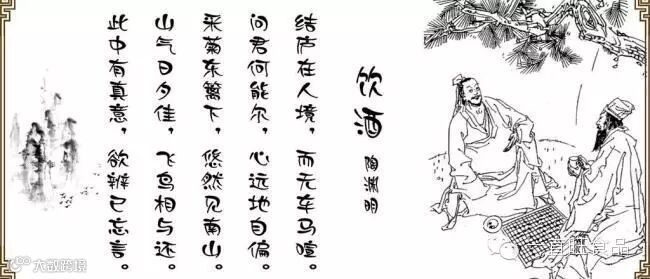 饮酒
陶渊明
结庐在人境，而无车马喧。
问君何能尔，心远地自偏。
采菊东篱下，悠然见南山。
山气日夕佳，飞鸟相与还。
此中有真意，欲辨已忘言。
大数跨境
食品